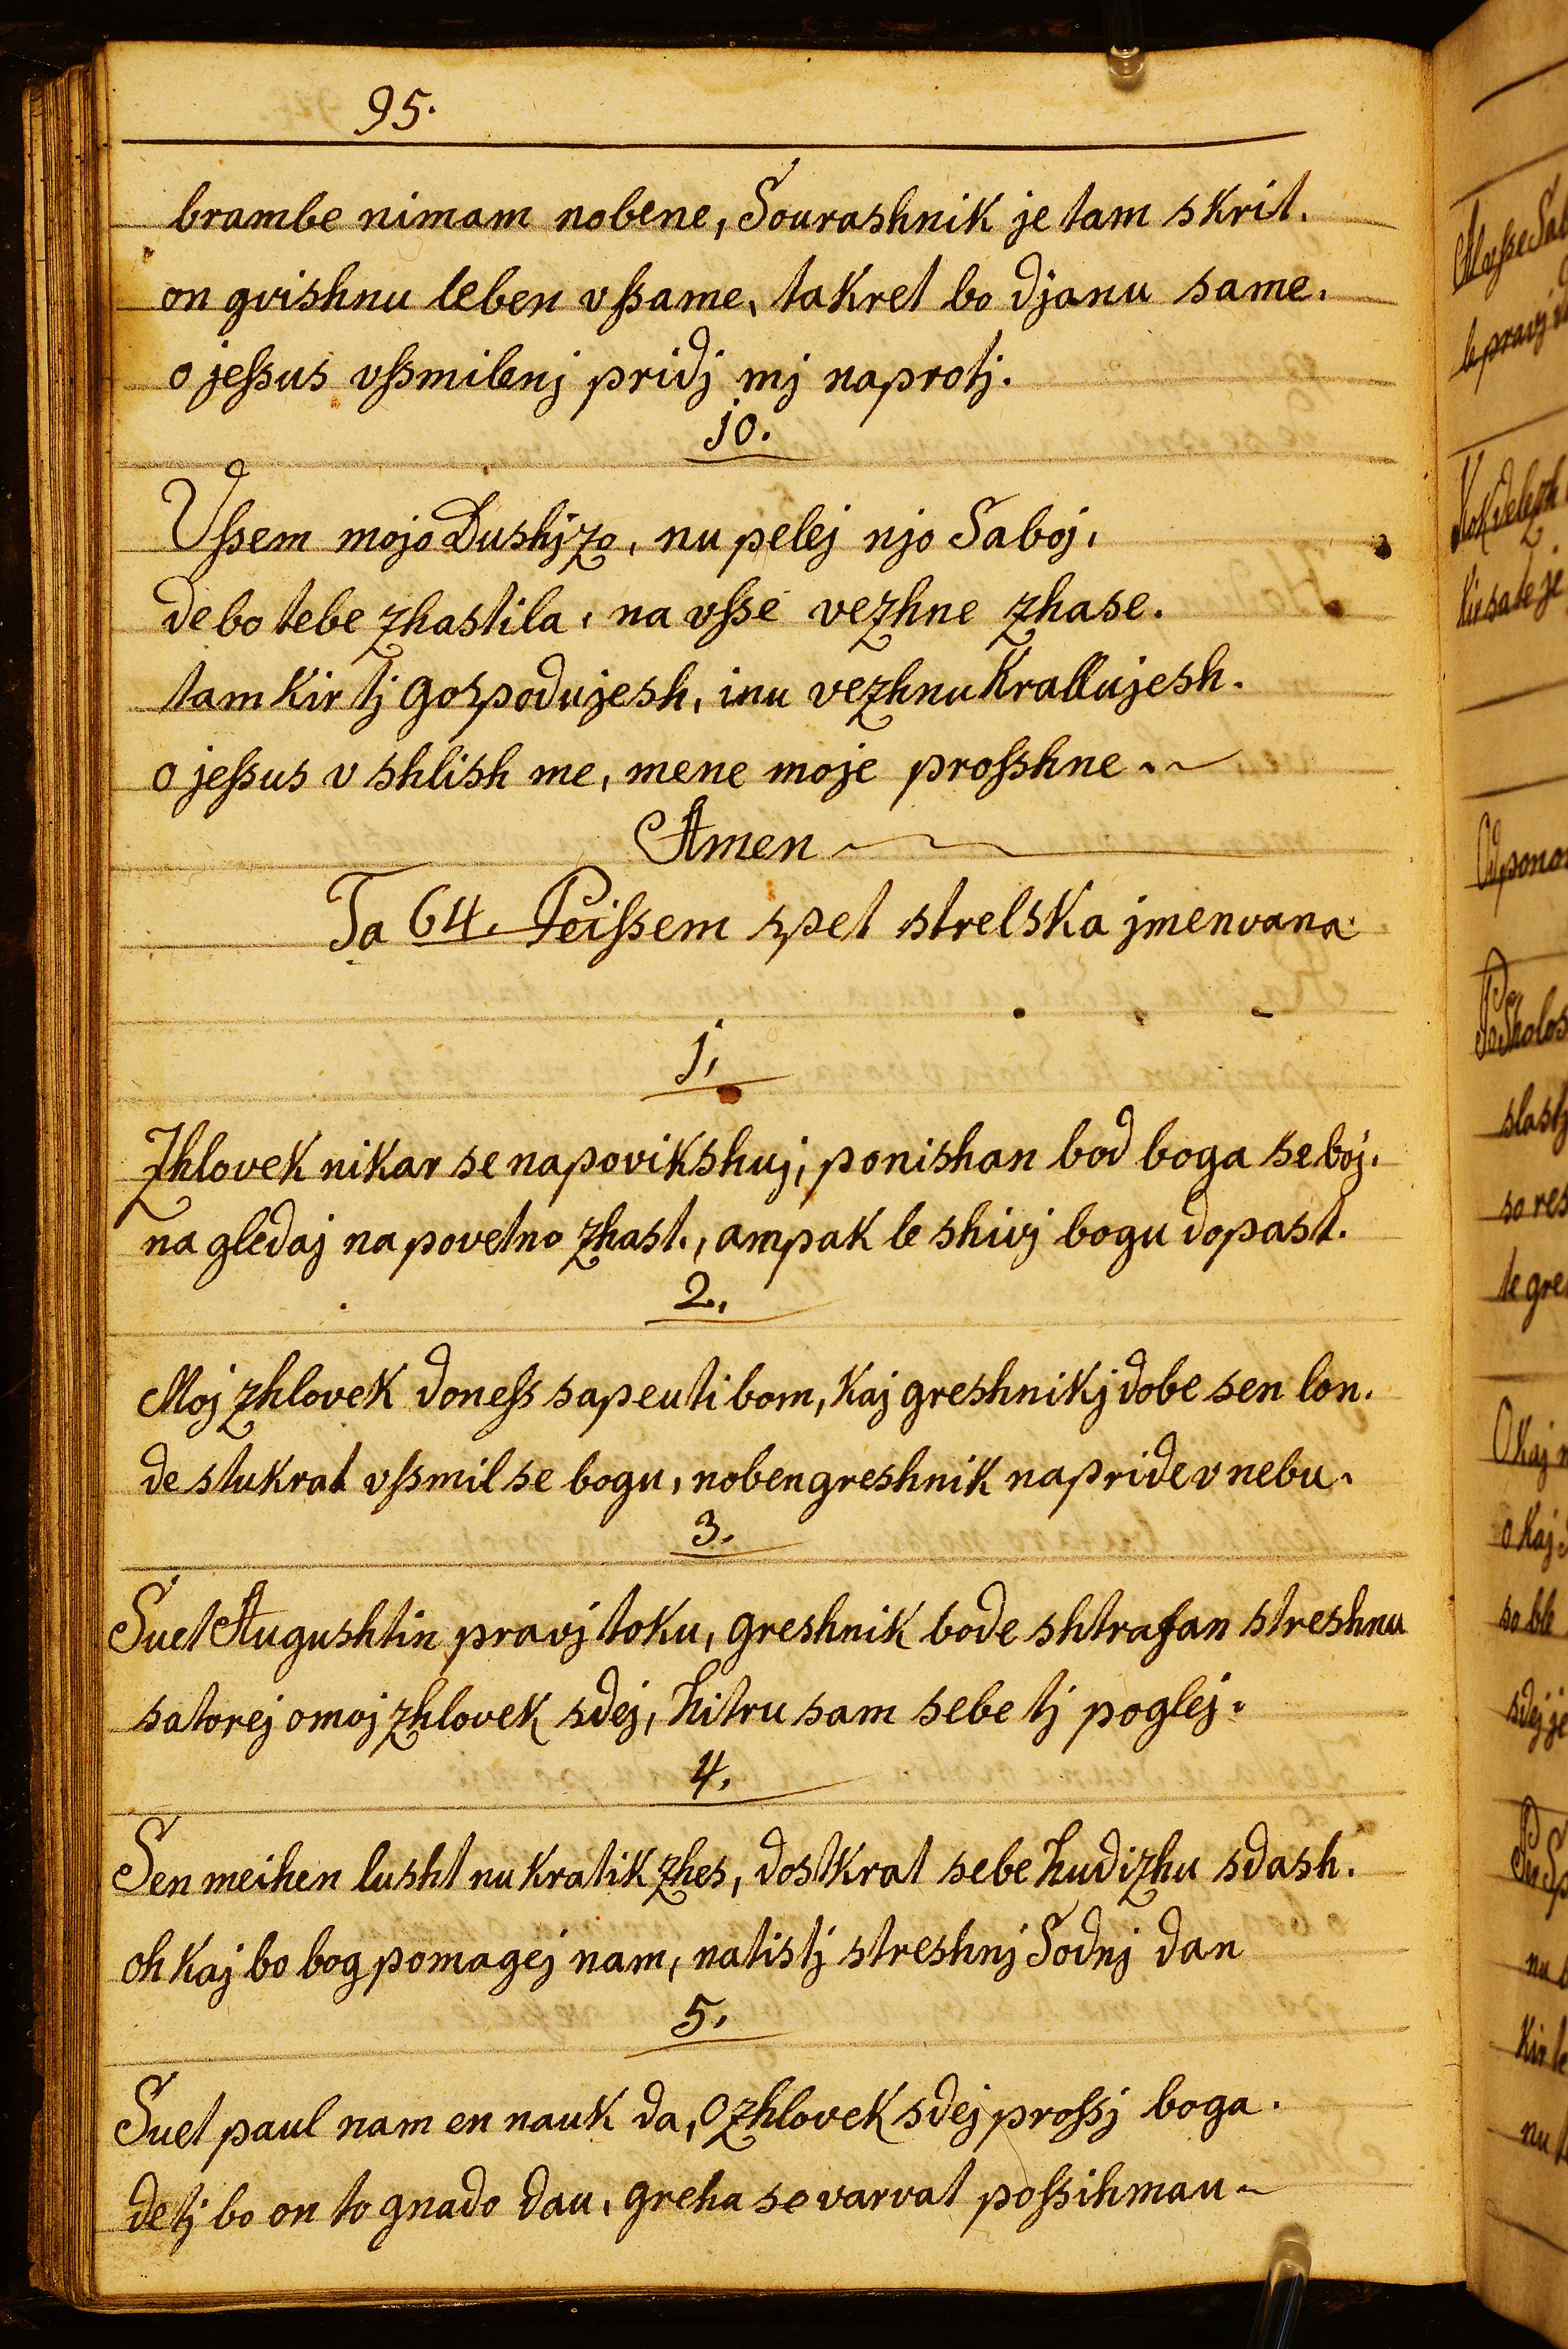 95.
brambe nimam nobene, Sourashnik je tam skrit.
on gvishnu leben vſsame, takret bo djanu same.
o jeſsus vſsmilenj pridj mj naprotj.
jo.
Vſsem mojo Dushjzo, nu pelej njo Saboj,
de bo tebe zhastila, na vſse vezhne zhase.
tam kir tj gospodujesh, inu vezhnu krallujesh.
o jeſsus v shlish me, mene moje proſshne.
Amen
Ta 64. Peiſsem spet strelska jmenvana
j,
Zhlovek nikar se napovikshuj, ponishan bod boga se boj.
na gledaj na povetno zhast., ampak le shivj bogu dopast.
2.,
Moj zhlovek doneſs sapeuti bom, kaj greshnikj dobe sen lon.
de stukrat vſsmil se bogu, noben greshnik napride v nebu.
3.
Suet Augushtin pravj toku, greshnik bode shtrafan streshnu
satorej o moj zhlovek sdej, hitru sam sebe tj poglej.
4.
Sen meihen lusht nu kratik zhes, dostkrat sebe hudizhu sdash.
oh kaj bo bog pomagej nam, na tistj streshnj Sodnj dan
5.
Suet paul nam en nauk da, O zhlovek sdej proſsj boga.
de tj bo on to gnado dau, greha se varvat poſsihmau